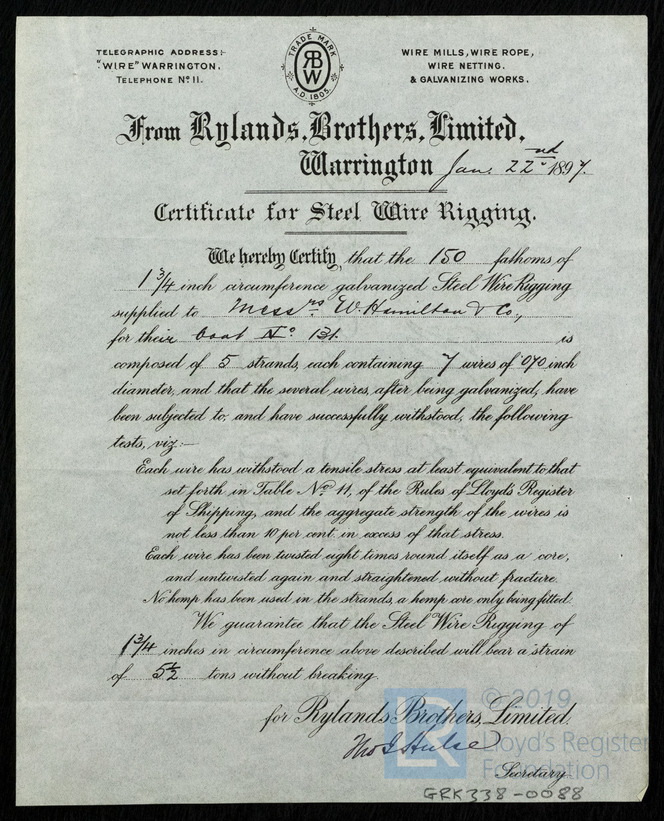 TELEGRAPHIC ADDRESS:-
"WIRE" WARRINGTON.
TELEPHONE No 11.
TRADE MARK
RBW
A.D. 1805.
WIRE MILLS, WIRE ROPE,
WIRE NETTING.
& GALVANIZING WORKS.
From Rylands, Brothers, Limited,
Warrington Jan. 22nd 1897.
Certificate for Steel Wire Rigging.
We hereby Certify, that the 150 fathoms of
1 3/4 inch circumference galvanized Steel Wire Rigging
supplied to Messrs W. Hamilton & Co.,
for their boat No 131. is
composed of 5 strands, each containing 7 wires of .070 inch
diameter, and that the several wires, after being galvanized, have
been subjected to, and have successfully withstood, the following
tests, viz:-
Each wire has withstood a tensile stress at least equivalent to that
set forth in Table No 11, of the Rules of Lloyd's Register
of Shipping, and the aggregate strength of the wires is
not less than 10 per cent. in excess of that stress.
Each wire has been twisted eight times round itself as a core,
and untwisted again and straightened without fracture.
No hemp has been used in the strands, a hemp core only being fitted.
We guarantee that the Steel Wire Rigging of
1 3/4 inches in circumference above described will bear a strain
of 5 1/2 tons without breaking.
for Rylands Brothers, Limited.
Thos J Hulse
Secretary.
LR
© 2019
Lloyd's Register
Foundation
GRK338-0088